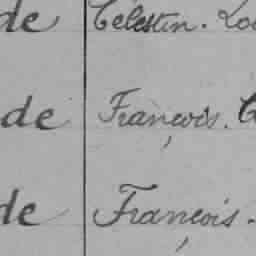 de Célestin. Lo
de François.
de François.